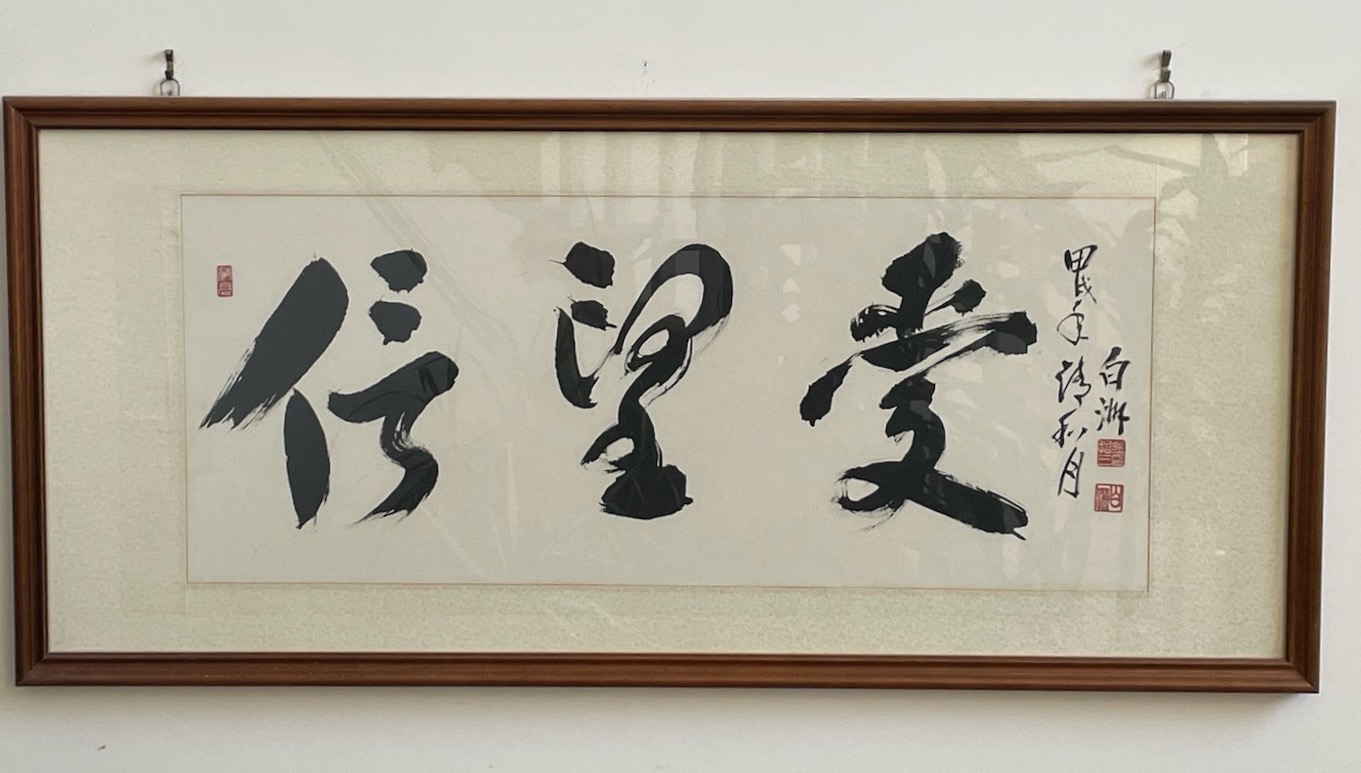 信望愛
甲戌年清和月
白洲